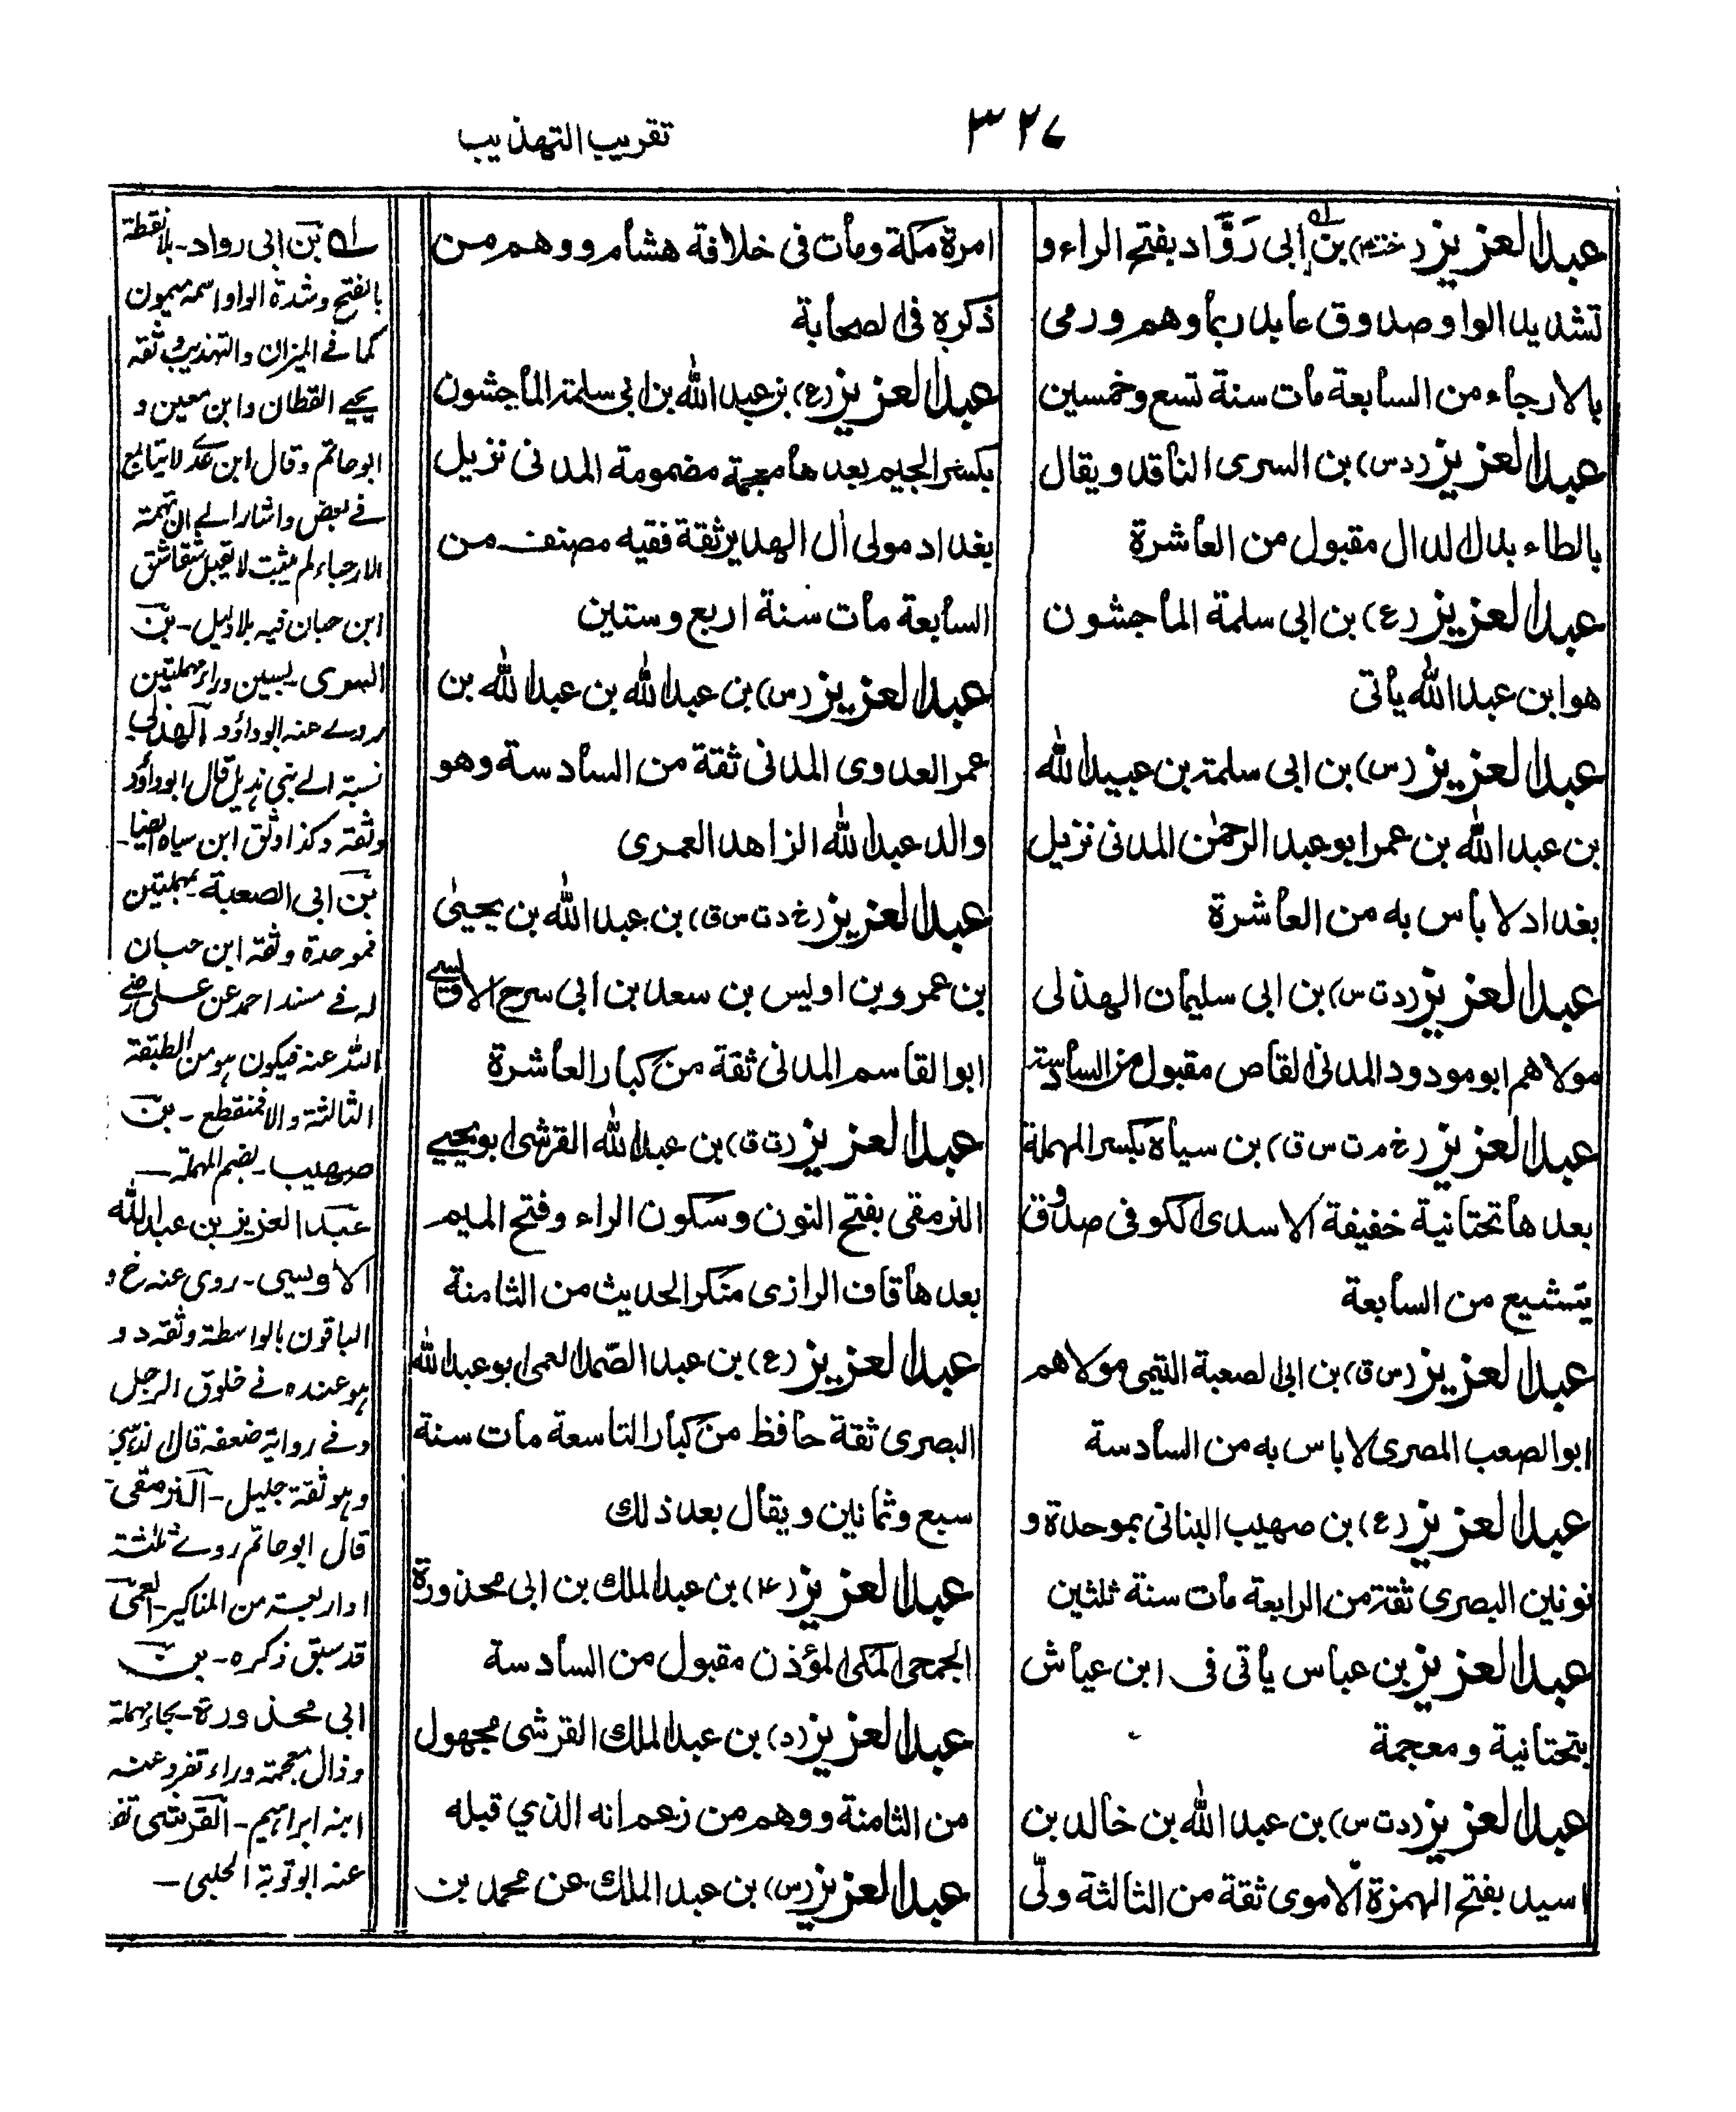 ٣٢٧
تقريب التهذيب
عبد العزيز (خت م) بن ابى رَوَّاد بفتح الراء و
تشديد الواو صدوق عابد ربما وهم ورمى
بالارجاء من السابعة مات سنة تسع وخمسين
عبد العزيز (د س) بن السرى الناقد ويقال
بالطاء بدل الدال مقبول من العاشرة
عبد العزيز (ع) بن ابى سلمة الماجشون
هو ابن عبد الله يأتى
عبد العزيز (س) بن ابى سلمة بن عبيد الله
بن عبد الله بن عمر ابو عبد الرحمٰن المدنى نزيل
بغداد لا بأس به من العاشرة
عبد العزيز (د ت س) بن ابى سليمان الهذلى
مولاهم ابو مودود المدنى القاص مقبول من السادسة
عبد العزيز (خ م ت س ق) بن سياه بكسر المهملة
بعدها تحتانية خفيفة الاسدى الكوفى صدوق
يتشيع من السابعة
عبد العزيز (س ق) بن ابى الصعبة التيمى مولاهم
ابو الصعب المصرى لا باس به من السادسة
عبد العزيز (ع) بن صهيب البنانى بموحدة و
نونين البصرى ثقة من الرابعة مات سنة ثلثين
عبد العزيز بن عباس يأتى فى ابن عياش
بتحتانية ومعجمة
عبد العزيز (د ت س) بن عبد الله بن خالد بن
اسيد بفتح الهمزة الاموى ثقة من الثالثة ولّى
امرة مكة ومات فى خلافة هشام ووهم من
ذكره فى الصحابة
عبد العزيز (ع) بن عبد الله بن ابى سلمة الماجشون
بكسر الجيم بعدها معجمة مضمومة المدنى نزيل
بغداد مولى اٰل الهدير ثقة فقيه مصنف من
السابعة مات سنة اربع وستين
عبد العزيز (س) بن عبد الله بن عبد الله بن
عمر العدوى المدنى ثقة من السادسة وهو
والد عبد الله الزاهد العمرى
عبد العزيز (خ د ت س ق) بن عبد الله بن يحيىٰ
بن عمرو بن اويس بن سعد بن ابى سرح الاويسى
ابو القاسم المدنى ثقة من كبار العاشرة
عبد العزيز (ت ق) بن عبد الله القرشى ابو يحيى
النرمقى بفتح النون وسكون الراء وفتح الميم
بعدها قاف الرازى منكر الحديث من الثامنة
عبد العزيز (ع) بن عبد الصمد العمى ابو عبد الله
البصرى ثقة حافظ من كبار التاسعة مات سنة
سبع وثمانين ويقال بعد ذلك
عبد العزيز (٤) بن عبد الملك بن ابى محذورة
الجمحى المكى المؤذن مقبول من السادسة
عبد العزيز (د) بن عبد الملك القرشى مجهول
من الثامنة ووهم من زعم انه الذي قبله
عبد العزيز (س) بن عبد الملك عن محمد بن
له بن ابى رواد ۔ بلا نقطة
بالفتح وشدة الواو اسمه ميمون
كما فى الميزان والتهذيب وثقه
يحيى القطان وابن معين و
ابو حاتم وقال ابن عدى لا يتابع
فى بعض واشار الى ان تهمة
الارجاء لم يثبت لا تقبل شقاشق
ابن حبان فيه بلا دليل ۔ بن
السرى ۔ بسين وراء مهملتين
روى عنه ابو داؤد الهذلى
نسبة الى بنى هذيل قال ابو داؤد
وثقه وكذا وثق ابن سياه ايضا ۔
بن ابى الصعبة بمهملتين
فموحدة وثقه ابن حبان
له فى مسند احمد عن على رضى
الله عنه فيكون هو من الطبقة
الثالثة والا فمنقطع ۔ بن
صهيب ۔ بضم المهملة ــ
عبد العزيز بن عبد الله
الاويسى ۔ روى عنه خ و
الباقون بالواسطة وثقه د و
هو عنده فى خلوق الرجل
وفى رواية ضعفه قال الذهبى
وهو ثقة جليل ۔ النرمقى
قال ابو حاتم روى ثلثة
او اربعة من المناكير ۔ العمى
قد سبق ذكره ۔ بن
ابى محذورة ۔ بحاء مهملة
وذال معجمة وراء تفرد عنه
ابنه ابراهيم ۔ القرشى تفر
عنه ابو توبة الحلبى ــ